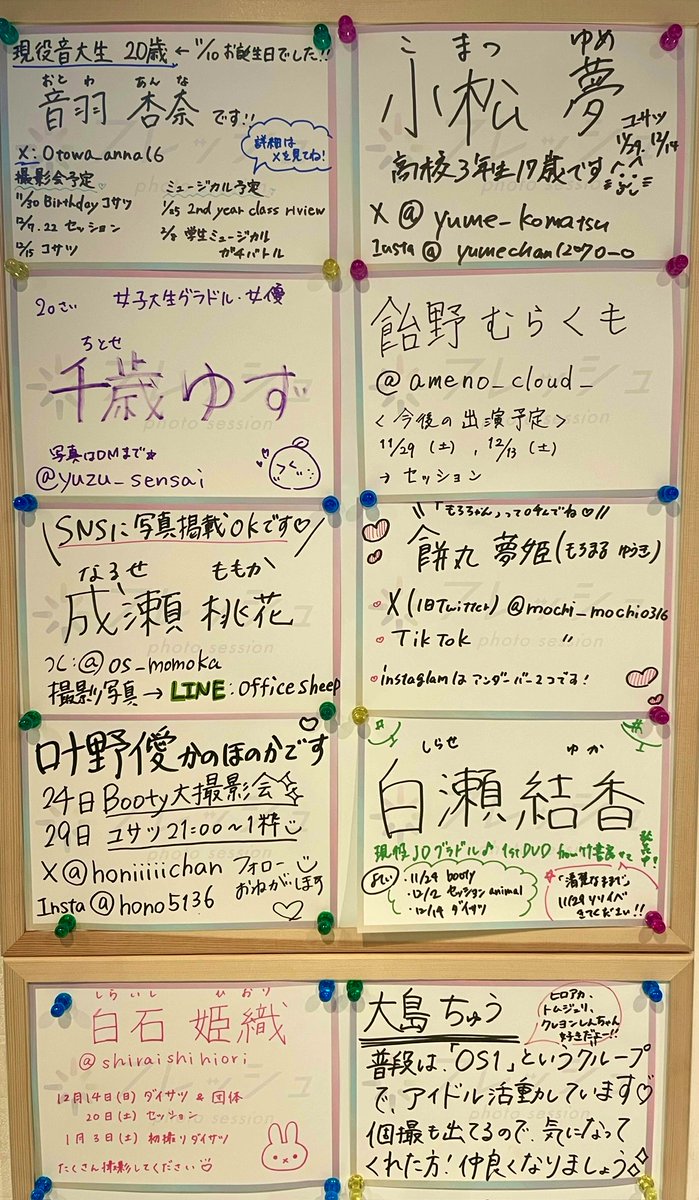 現役音大生 20歳 ← 11/10 お誕生日でした!!
おとわ あんな
音羽 杏奈 です!!
X: Otowa_anna16
詳細は
Xを見てね!
撮影会予定
11/30 Birthday コサツ
12/7.22 セッション
12/15 コサツ
ミュージカル予定
1/25 2nd year class
2/8 学生ミュージカル
ガチバトル
こまつ ゆめ
小松 夢
コサツ
11/29. 12/14
高校3年生17歳です
X @ yume_komatsu
Insta @ yumechan12070_0
20さい 女子大生グラドル・女優
ちとせ
千歳 ゆず
写真はDMまで
@yuzu_sensai
飴野 むらくも
@ameno_cloud_
<今後の出演予定>
11/29 (土), 12/13 (土)
→ セッション
SNSに写真掲載OKです♡
なるせ ももか
成瀬 桃花
X:@os_momoka
撮影写真→LINE:Office sheep
「もろちゃん」ってよんでね♡
餅丸 夢姫(もろまる ゆうき)
X(旧Twitter) @mochi_mochi0316
TikTok 〃
instaglamは アンダーバー2つです!
叶野優かのほのかです
24日 Booty大撮影会
29日 コサツ21:00〜1枠
X@honiiiiichan フォロー
おねがいします
Insta@hono5136
しらせ ゆか
白瀬 結香
現役JDグラドル♪ 1stDVD from竹書房
発売中!
・11/24 booty
・12/2 セッション animal
・12/14 ダイサツ
「清麗なままで」
11/29 リリイベ
きてください!!
しらいし ひおり
白石 姫織
@shiraishihiori
12月14日(日) ダイサツ & 団体
20日(土) セッション
1月3日(土) 初撮りダイサツ
たくさん撮影してください♡
大島 ちゅう
ヒロアカ、
トムジェリ、
クレヨンしんちゃん
好きだよー!!
普段は、「OS1」というグループ
で、アイドル活動しています♡
個撮も出てるので、気になって
くれた方! 仲良くなりましょう